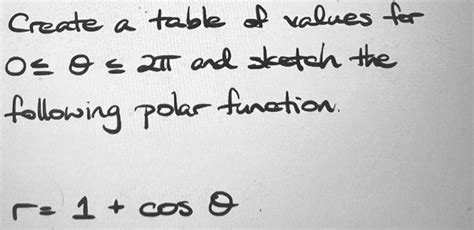 Create a table of values for
0 ≤ θ ≤ 2π and sketch the
following polar function.
r = 1 + cos θ